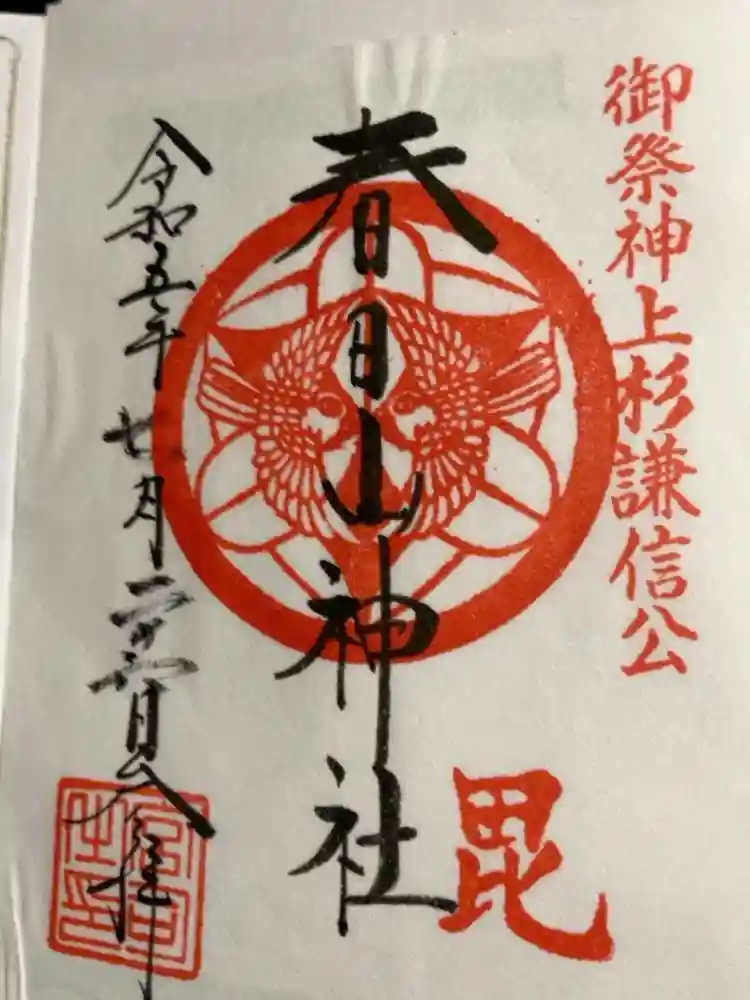 御祭神上杉謙信公
毘
春日山神社
令和五年 月二十 日 拝
宮司之印